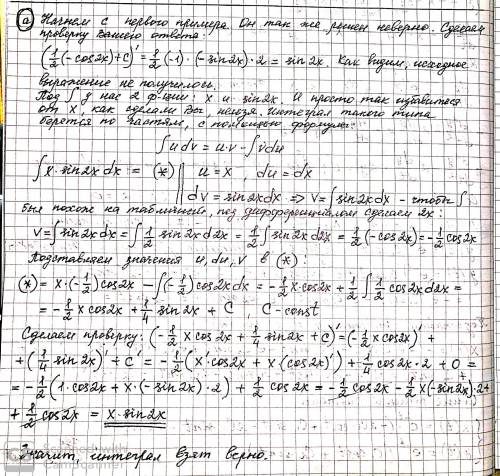 а) Начнем с первого примера. Он так же решен неверно. Сделаем
проверку Вашего ответа:
(1/2(-cos2x)+C)' = 1/2(-1)·(-sin2x)·2 = sin2x. Как видим, исходное
выражение не получилось.
Под ∫ у нас 2 ф-ции: x и sin2x. И просто так избавиться
от x, как сделали Вы, нельзя. Интеграл такого типа
берется по частям, с помощью формулы:
∫udv = u·v - ∫vdu
∫x·sin2xdx = (*) || u = x, du = dx
dv = sin2xdx => v = ∫sin2xdx - чтобы ∫
был похож на табличный, под дифференциалом сделаем 2x:
v = ∫sin2xdx = ∫1/2 sin2xd2x = 1/2∫sin2xd2x = 1/2(-cos2x) = -1/2cos2x
Подставляем значения u, du, v в (*):
(*) = x·(-1/2)cos2x - ∫(-1/2)cos2xdx = -1/2x·cos2x + 1/2∫1/2cos2xd2x =
= -1/2 x cos2x + 1/4 sin2x + C, C-const
Сделаем проверку: (-1/2 x cos2x + 1/4 sin2x + C)' = (-1/2 x cos2x)' +
+ (1/4 sin2x)' + C' = -1/2(x'cos2x + x(cos2x)') + 1/4 cos2x·2 + 0 =
= -1/2(1·cos2x + x·(-sin2x)·2) + 1/2 cos2x = -1/2cos2x - 1/2x(-sin2x)·2 +
+ 1/2cos2x = x·sin2x
Значит, интеграл взят верно.
CamScanner